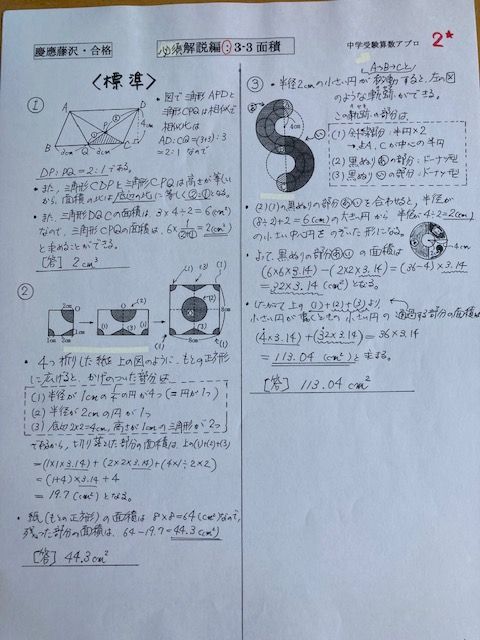 慶應藤沢・合格
必須解説編：3-3面積
中学受験算数アプロ
2*
〈標準〉
①
A
D
P
B
Q
C
4cm
2cm
3cm
・図で三角形APDと
三角形CPQは相似で
相似比は
AD:CQ=(3+3):3
=2:1なので
DP:PQ=2:1である。
・また、三角形CDPと三角形CPQは高さが等しい
から、面積の比は底辺の比に等しく②:①となる。
・また、三角形DQCの面積は、3×4÷2=6(cm²)
なので、三角形CPQの面積は、6×1/(2+1)=2(cm²)
と求めることができる。
[答] 2cm²
②
2cm
1cm
2cm
(1)
(2)
(3)
8cm
8cm
・4つ折りした紙を上の図のように、もとの正方形
に広げると、かげのついた部分は
(1) 半径が1cmの1/4の円が4つ(=円が1つ)
(2) 半径が2cmの円が1つ
(3) 底辺2×2=4cm,高さが1cmの三角形が2つ
であるから、切り落とした部分の面積は、上の(1)+(2)+(3)
=(1×1×3.14)+(2×2×3.14)+(4×1÷2×2)
=(1+4)×3.14+4
=19.7(cm²)となる。
・紙(もとの正方形)の面積は8×8=64(cm²)なので、
残った部分の面積は、64-19.7=44.3(cm²)
[答] 44.3cm²
③
A→B→Cと
・半径2cmの小さい円が移動すると、左の図
のような軌跡ができる。
この軌跡の部分は、
(2) 黒ぬりあの部分:ドーナツ型
(3) 黒ぬりいの部分:ドーナツ型
4cm
・(2)(3)の黒ぬりの部分あいを合わせると、半径が
(8÷2)+2=6(cm)の大きい円から半径が4÷2=2(cm)
の小さい中心円をのぞいた形になる。
・よって、黒ぬりの部分あいの面積は
(6×6×3.14)-(2×2×3.14)=(36-4)×3.14
=32×3.14(cm²)となる。
・したがって上の(1)+(2)+(3)より、
小さい円が動くときの小さい円の通過する部分の面積は
(4×3.14)+(32×3.14)=36×3.14
=113.04(cm²)と求まる。
[答] 113.04cm²